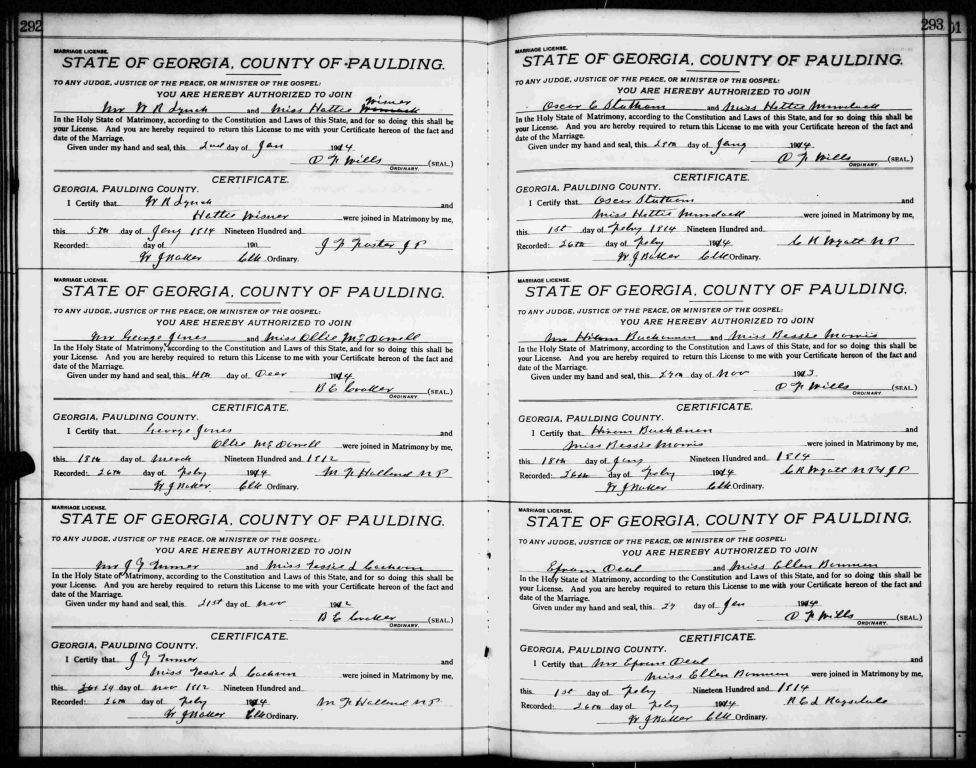 292
MARRIAGE LICENSE.
STATE OF GEORGIA, COUNTY OF PAULDING.
TO ANY JUDGE, JUSTICE OF THE PEACE, OR MINISTER OF THE GOSPEL:
YOU ARE HEREBY AUTHORIZED TO JOIN
Wisner
Mr W R Lynch and Miss Hattie
In the Holy State of Matrimony, according to the Constitution and Laws of this State, and for so doing this shall be
your License. And you are hereby required to return this License to me with your Certificate hereon of the fact and
date of the Marriage.
Given under my hand and seal, this 2nd day of Jan 1914
O F Wills (SEAL.)
ORDINARY.
CERTIFICATE.
GEORGIA, PAULDING COUNTY.
I Certify that W R Lynch and
Hattie Wisner were joined in Matrimony by me,
this 5th day of Jany 1914 Nineteen Hundred and
Recorded: day of 190 J F Foster J P
W J Baker Clk Ordinary.
MARRIAGE LICENSE.
STATE OF GEORGIA, COUNTY OF PAULDING.
TO ANY JUDGE, JUSTICE OF THE PEACE, OR MINISTER OF THE GOSPEL:
YOU ARE HEREBY AUTHORIZED TO JOIN
Mr George Jones and Miss Ollie McDowell
In the Holy State of Matrimony, according to the Constitution and Laws of this State, and for so doing this shall be
your License. And you are hereby required to return this License to me with your Certificate hereon of the fact and
date of the Marriage.
Given under my hand and seal, this 4th day of 1914
B C (SEAL.)
ORDINARY.
CERTIFICATE.
GEORGIA, PAULDING COUNTY.
I Certify that George Jones and
Ollie McDowell were joined in Matrimony by me,
this 18th day of March Nineteen Hundred and 1912
Recorded: 26th day of Feby 1914 M F Holland N P
W J Baker Clk Ordinary.
MARRIAGE LICENSE.
STATE OF GEORGIA, COUNTY OF PAULDING.
TO ANY JUDGE, JUSTICE OF THE PEACE, OR MINISTER OF THE GOSPEL:
YOU ARE HEREBY AUTHORIZED TO JOIN
Mr J Y Turner and Miss Tessie L
In the Holy State of Matrimony, according to the Constitution and Laws of this State, and for so doing this shall be
your License. And you are hereby required to return this License to me with your Certificate hereon of the fact and
date of the Marriage.
Given under my hand and seal, this 21st day of Nov 1912
B C (SEAL.)
ORDINARY.
CERTIFICATE.
GEORGIA, PAULDING COUNTY.
I Certify that J Y Turner and
Miss Tessie L were joined in Matrimony by me,
this 24 day of Nov 1912 Nineteen Hundred and
Recorded: 26th day of Feby 1914 M F Holland N P
W J Baker Clk Ordinary.
293
91
MARRIAGE LICENSE.
STATE OF GEORGIA, COUNTY OF PAULDING.
TO ANY JUDGE, JUSTICE OF THE PEACE, OR MINISTER OF THE GOSPEL:
YOU ARE HEREBY AUTHORIZED TO JOIN
Oscar C Statham and Miss Hattie
In the Holy State of Matrimony, according to the Constitution and Laws of this State, and for so doing this shall be
your License. And you are hereby required to return this License to me with your Certificate hereon of the fact and
date of the Marriage.
Given under my hand and seal, this 28th day of Jany 1914
O F Wills (SEAL.)
ORDINARY.
CERTIFICATE.
GEORGIA, PAULDING COUNTY.
I Certify that Oscar Statham and
Miss Hattie were joined in Matrimony by me,
this 1st day of Feby 1914 Nineteen Hundred and
Recorded: 26th day of Feby 1914 C H Wyatt N P
W J Baker Clk Ordinary.
MARRIAGE LICENSE.
STATE OF GEORGIA, COUNTY OF PAULDING.
TO ANY JUDGE, JUSTICE OF THE PEACE, OR MINISTER OF THE GOSPEL:
YOU ARE HEREBY AUTHORIZED TO JOIN
Mr Hiram Buchanen and Miss Bessie Morris
In the Holy State of Matrimony, according to the Constitution and Laws of this State, and for so doing this shall be
your License. And you are hereby required to return this License to me with your Certificate hereon of the fact and
date of the Marriage.
Given under my hand and seal, this 29th day of Nov 1913
O F Wills (SEAL.)
ORDINARY.
CERTIFICATE.
GEORGIA, PAULDING COUNTY.
I Certify that Hiram Buchanen and
Miss Bessie Morris were joined in Matrimony by me,
this 18th day of Jany Nineteen Hundred and 1914
Recorded: 26th day of Feby 1914 C H Wyatt N P & J P
W J Baker Clk Ordinary.
MARRIAGE LICENSE.
STATE OF GEORGIA, COUNTY OF PAULDING.
TO ANY JUDGE, JUSTICE OF THE PEACE, OR MINISTER OF THE GOSPEL:
YOU ARE HEREBY AUTHORIZED TO JOIN
Efram Deal and Miss Ellen
In the Holy State of Matrimony, according to the Constitution and Laws of this State, and for so doing this shall be
your License. And you are hereby required to return this License to me with your Certificate hereon of the fact and
date of the Marriage.
Given under my hand and seal, this 29 day of Jan 1914
O F Wills (SEAL.)
ORDINARY.
CERTIFICATE.
GEORGIA, PAULDING COUNTY.
I Certify that Mr Efram Deal and
Miss Ellen were joined in Matrimony by me,
this 1st day of Feby Nineteen Hundred and 1914
Recorded: 26th day of Feby 1914 R E L Ragsdale
W J Baker Clk Ordinary.